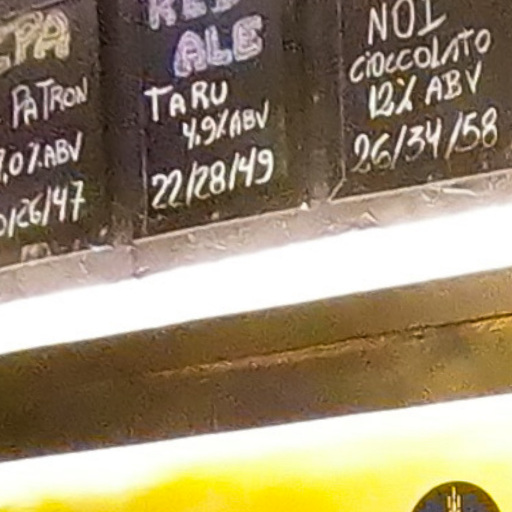 IPA
PATRON
7,0%ABV
0/26/47
RED
ALE
TARU
4,9%ABV
22/28/49
NOI
CIOCCOLATO
12% ABV
26/34/58